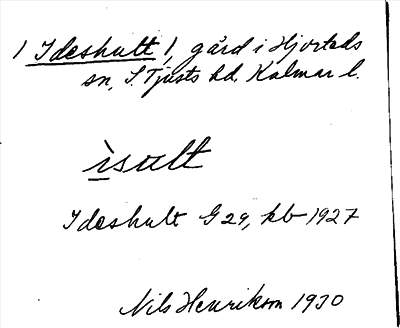 / Ideshult /, gård i Hjorteds
sn, S. Tjusts hd. Kalmar l.
ìsult
Ideshult G 29, kb 1927
Nils Henrikson 1930